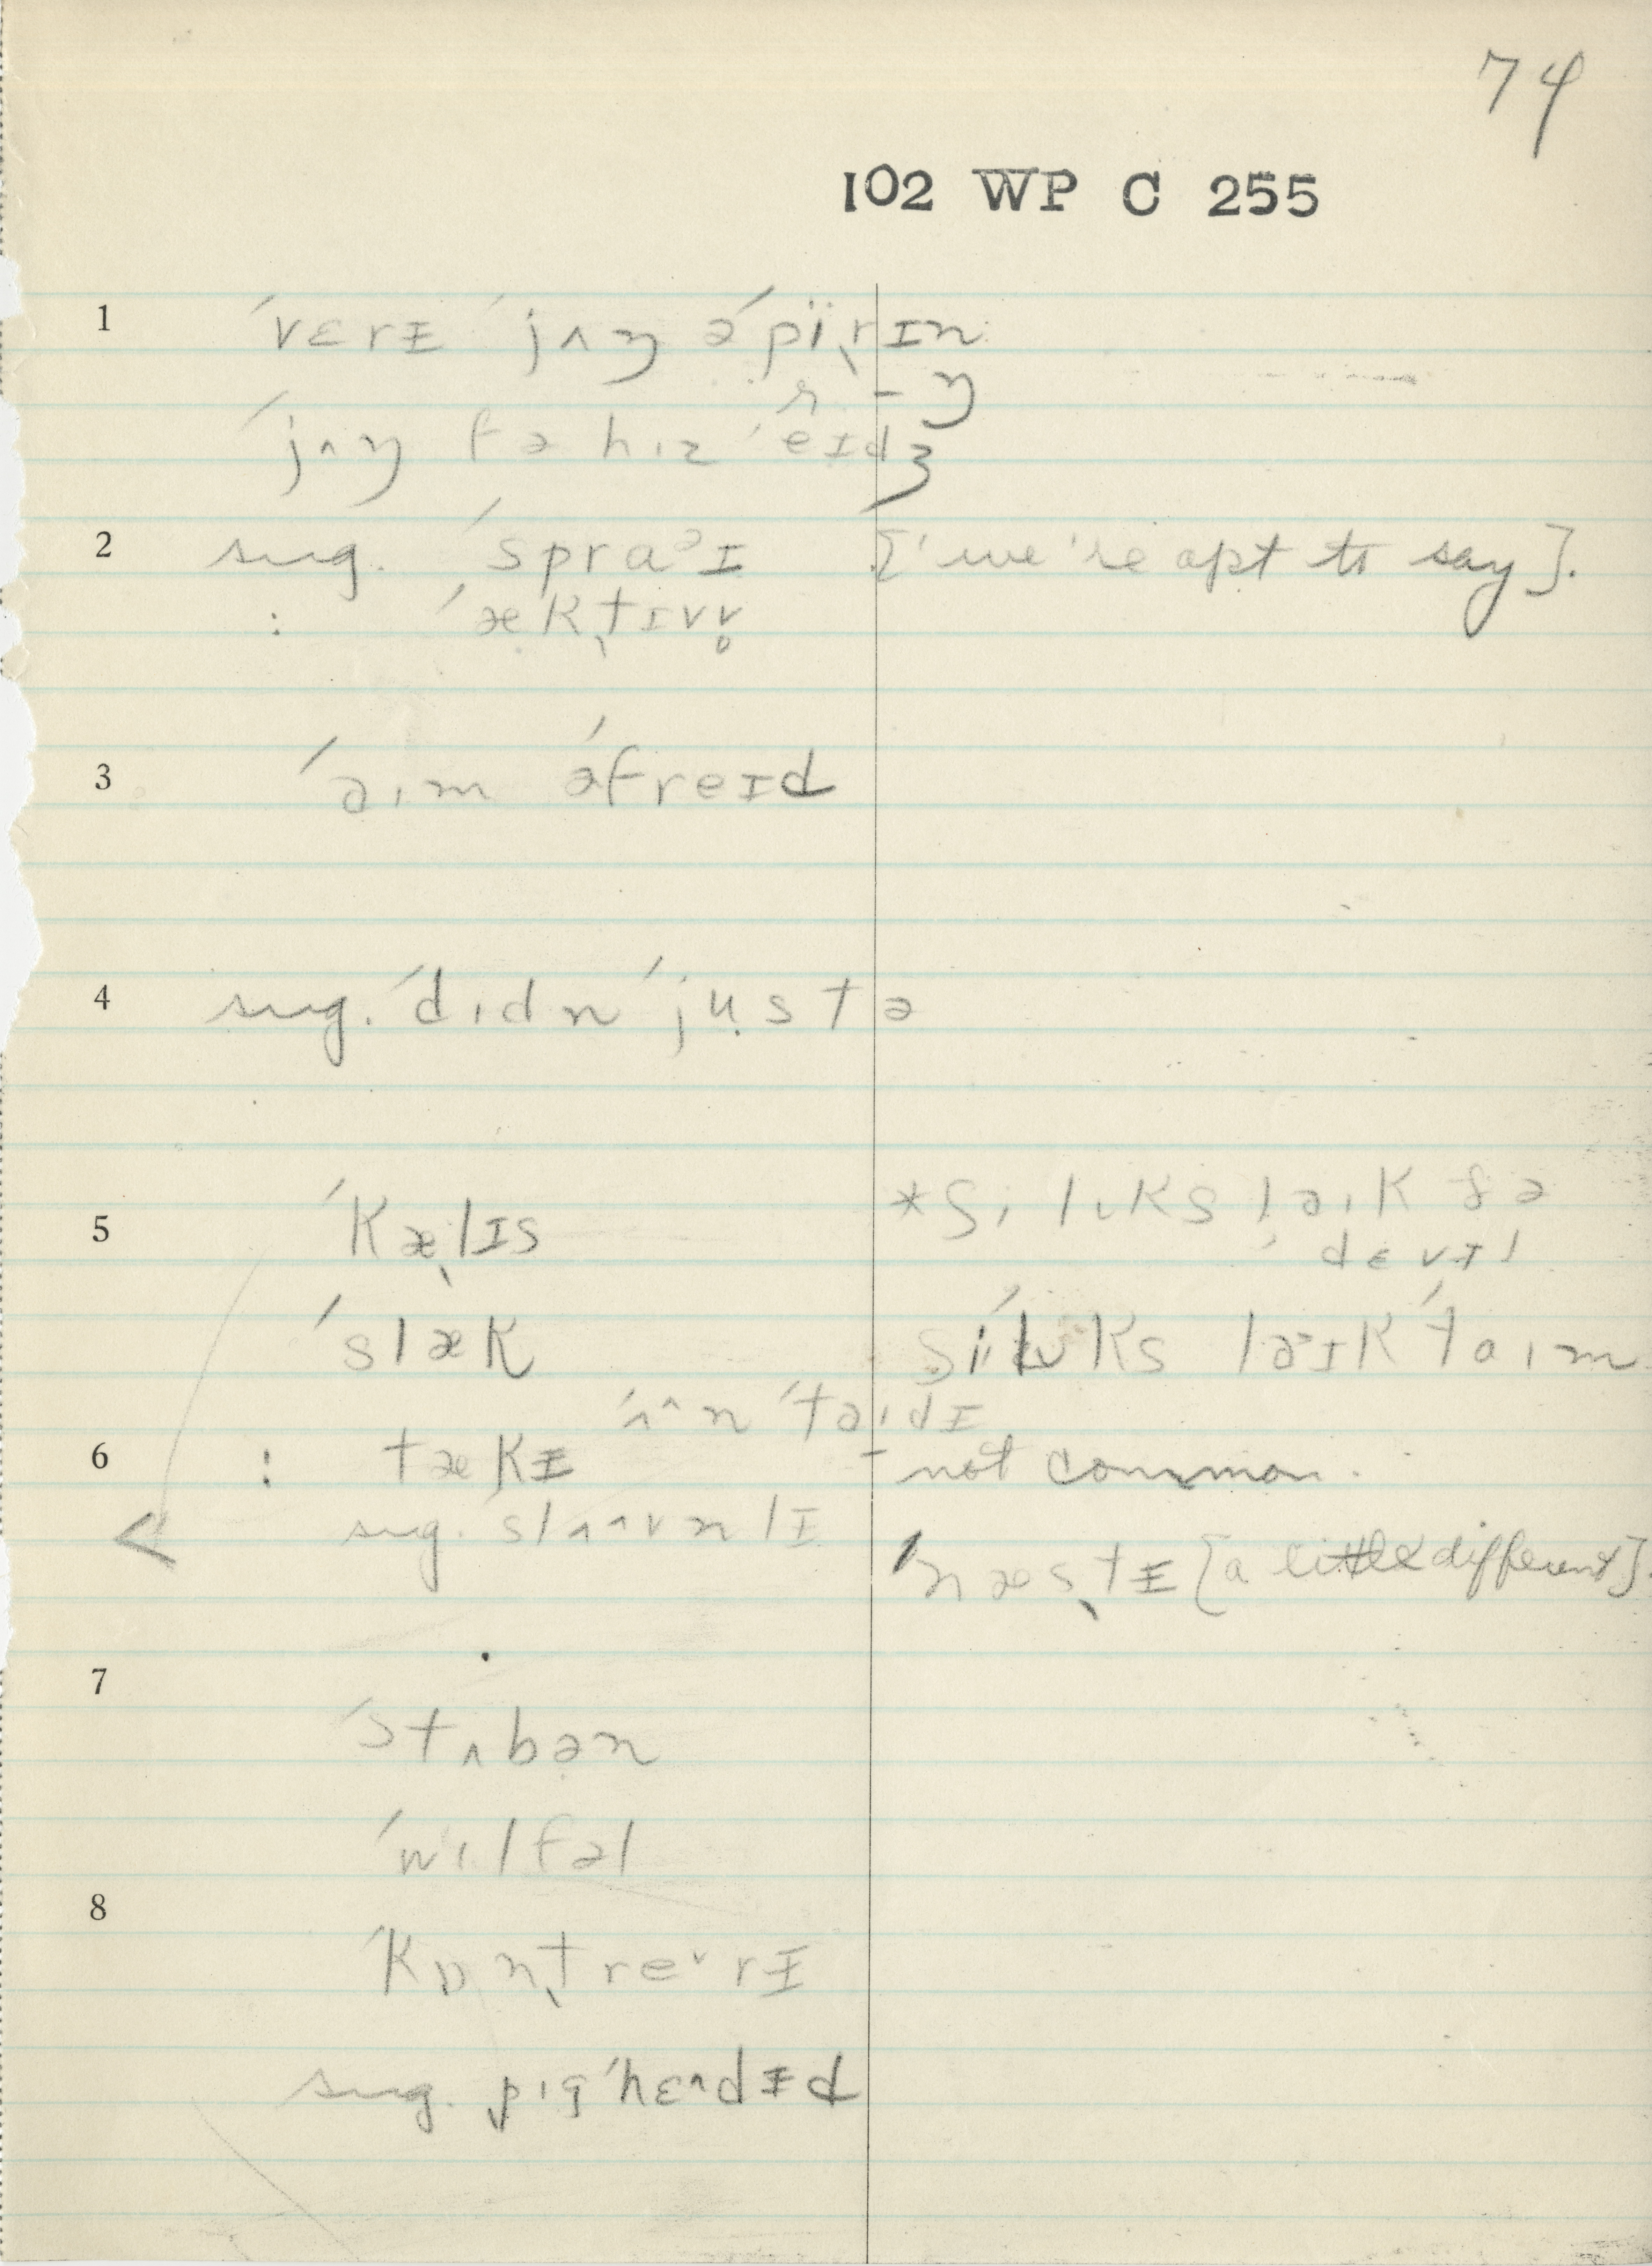 74
102 WP C 255
1 ˈvɛrᵻ ˈjʌŋ əˈpï̢rɪn
ɚ - ŋ
ˈjʌŋ fə hɪz ˈeɪdʒ
2 sug. ˈspraᵊɪ [ˈwe're apt to say].
: ˈæktɪvv̥
3 ˈaɪm əˈfreɪd
4 sug. ˈdɪdn ˈjustə
5 ˈkælɪs *ʃi lʊks laɪk ðə
ˈdɛvɪl
ˈslæk ʃi ˈlʊks ləᵊɪk ˈtaɪm
ˈʌn ˈtaɪdɪ
6 : tækᵻ - not common.
sug. slʌvnlɪ ˈnæstᵻ [a little different].
7 ˈstʌbən
ˈwɪlfəl
8 ˈkɒntreᵛrᵻ
sug. pɪgˈhɛᵊdᵻd